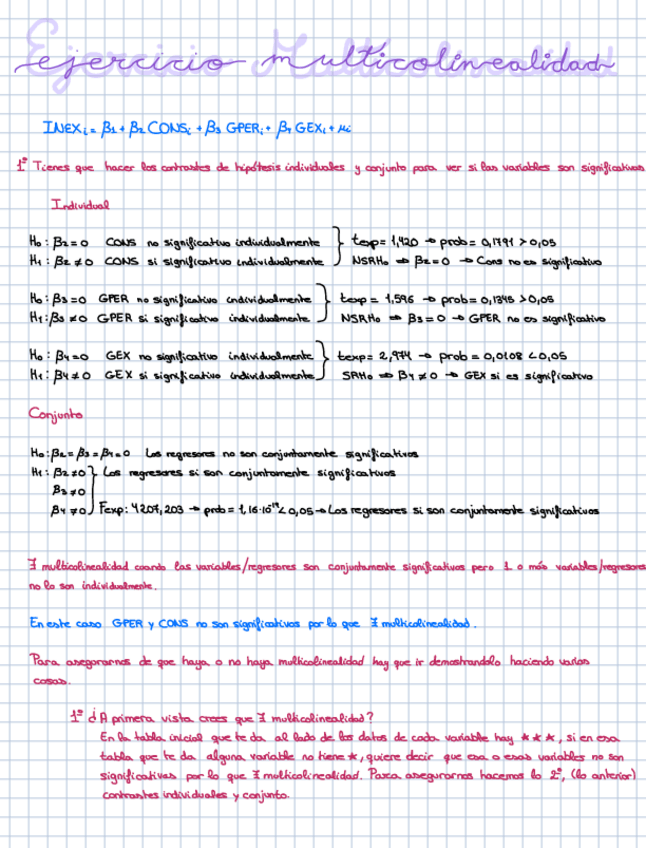 ejercicio multicolinealidad
INEXi = β1 + β2 CONSi + β3 GPERi + β4 GEXi + μi
1º Tienes que hacer los contrastes de hipótesis individuales y conjunto para ver si las variables son significativas
Individual
H0: β2 = 0 CONS no significativa individualmente } texp = 1,420 → prob = 0,1791 > 0,05
H1: β2 ≠ 0 CONS si significativa individualmente NSRH0 ⇒ β2 = 0 → Cons no es significativo
H0: β3 = 0 GPER no significativo individualmente } texp = 1,596 → prob = 0,1345 > 0,05
H1: β3 ≠ 0 GPER si significativo individualmente NSRH0 ⇒ β3 = 0 → GPER no es significativo
H0: β4 = 0 GEX no significativa individualmente } texp = 2,974 → prob = 0,0108 < 0,05
H1: β4 ≠ 0 GEX si significativo individualmente SRH0 ⇒ β4 ≠ 0 → GEX si es significativo
Conjunto
H0: β2 = β3 = β4 = 0 Los regresores no son conjuntamente significativos
H1: β2 ≠ 0 } Los regresores si son conjuntamente significativos
β3 ≠ 0
β4 ≠ 0 Fexp: 4207,203 → prob = 1,16·10 < 0,05 → Los regresores si son conjuntamente significativos
∃ multicolinealidad cuando las variables/regresores son conjuntamente significativos pero 1 o más variables/regresores
no lo son individualmente.
En este caso GPER y CONS no son significativos por lo que ∃ multicolinealidad.
Para asegurarnos de que haya o no haya multicolinealidad hay que ir demostrandolo haciendo varias
cosas.
1º ¿A primera vista crees que ∃ multicolinealidad?
En la tabla inicial que te da al lado de los datos de cada variable hay ★★★, si en esa
tabla que te da alguna variable no tiene ★, quiere decir que esa o esas variables no son
significativas por lo que ∃ multicolinealidad. Para asegurarnos hacemos lo 2º, (lo anterior)
contrastes individuales y conjunto.